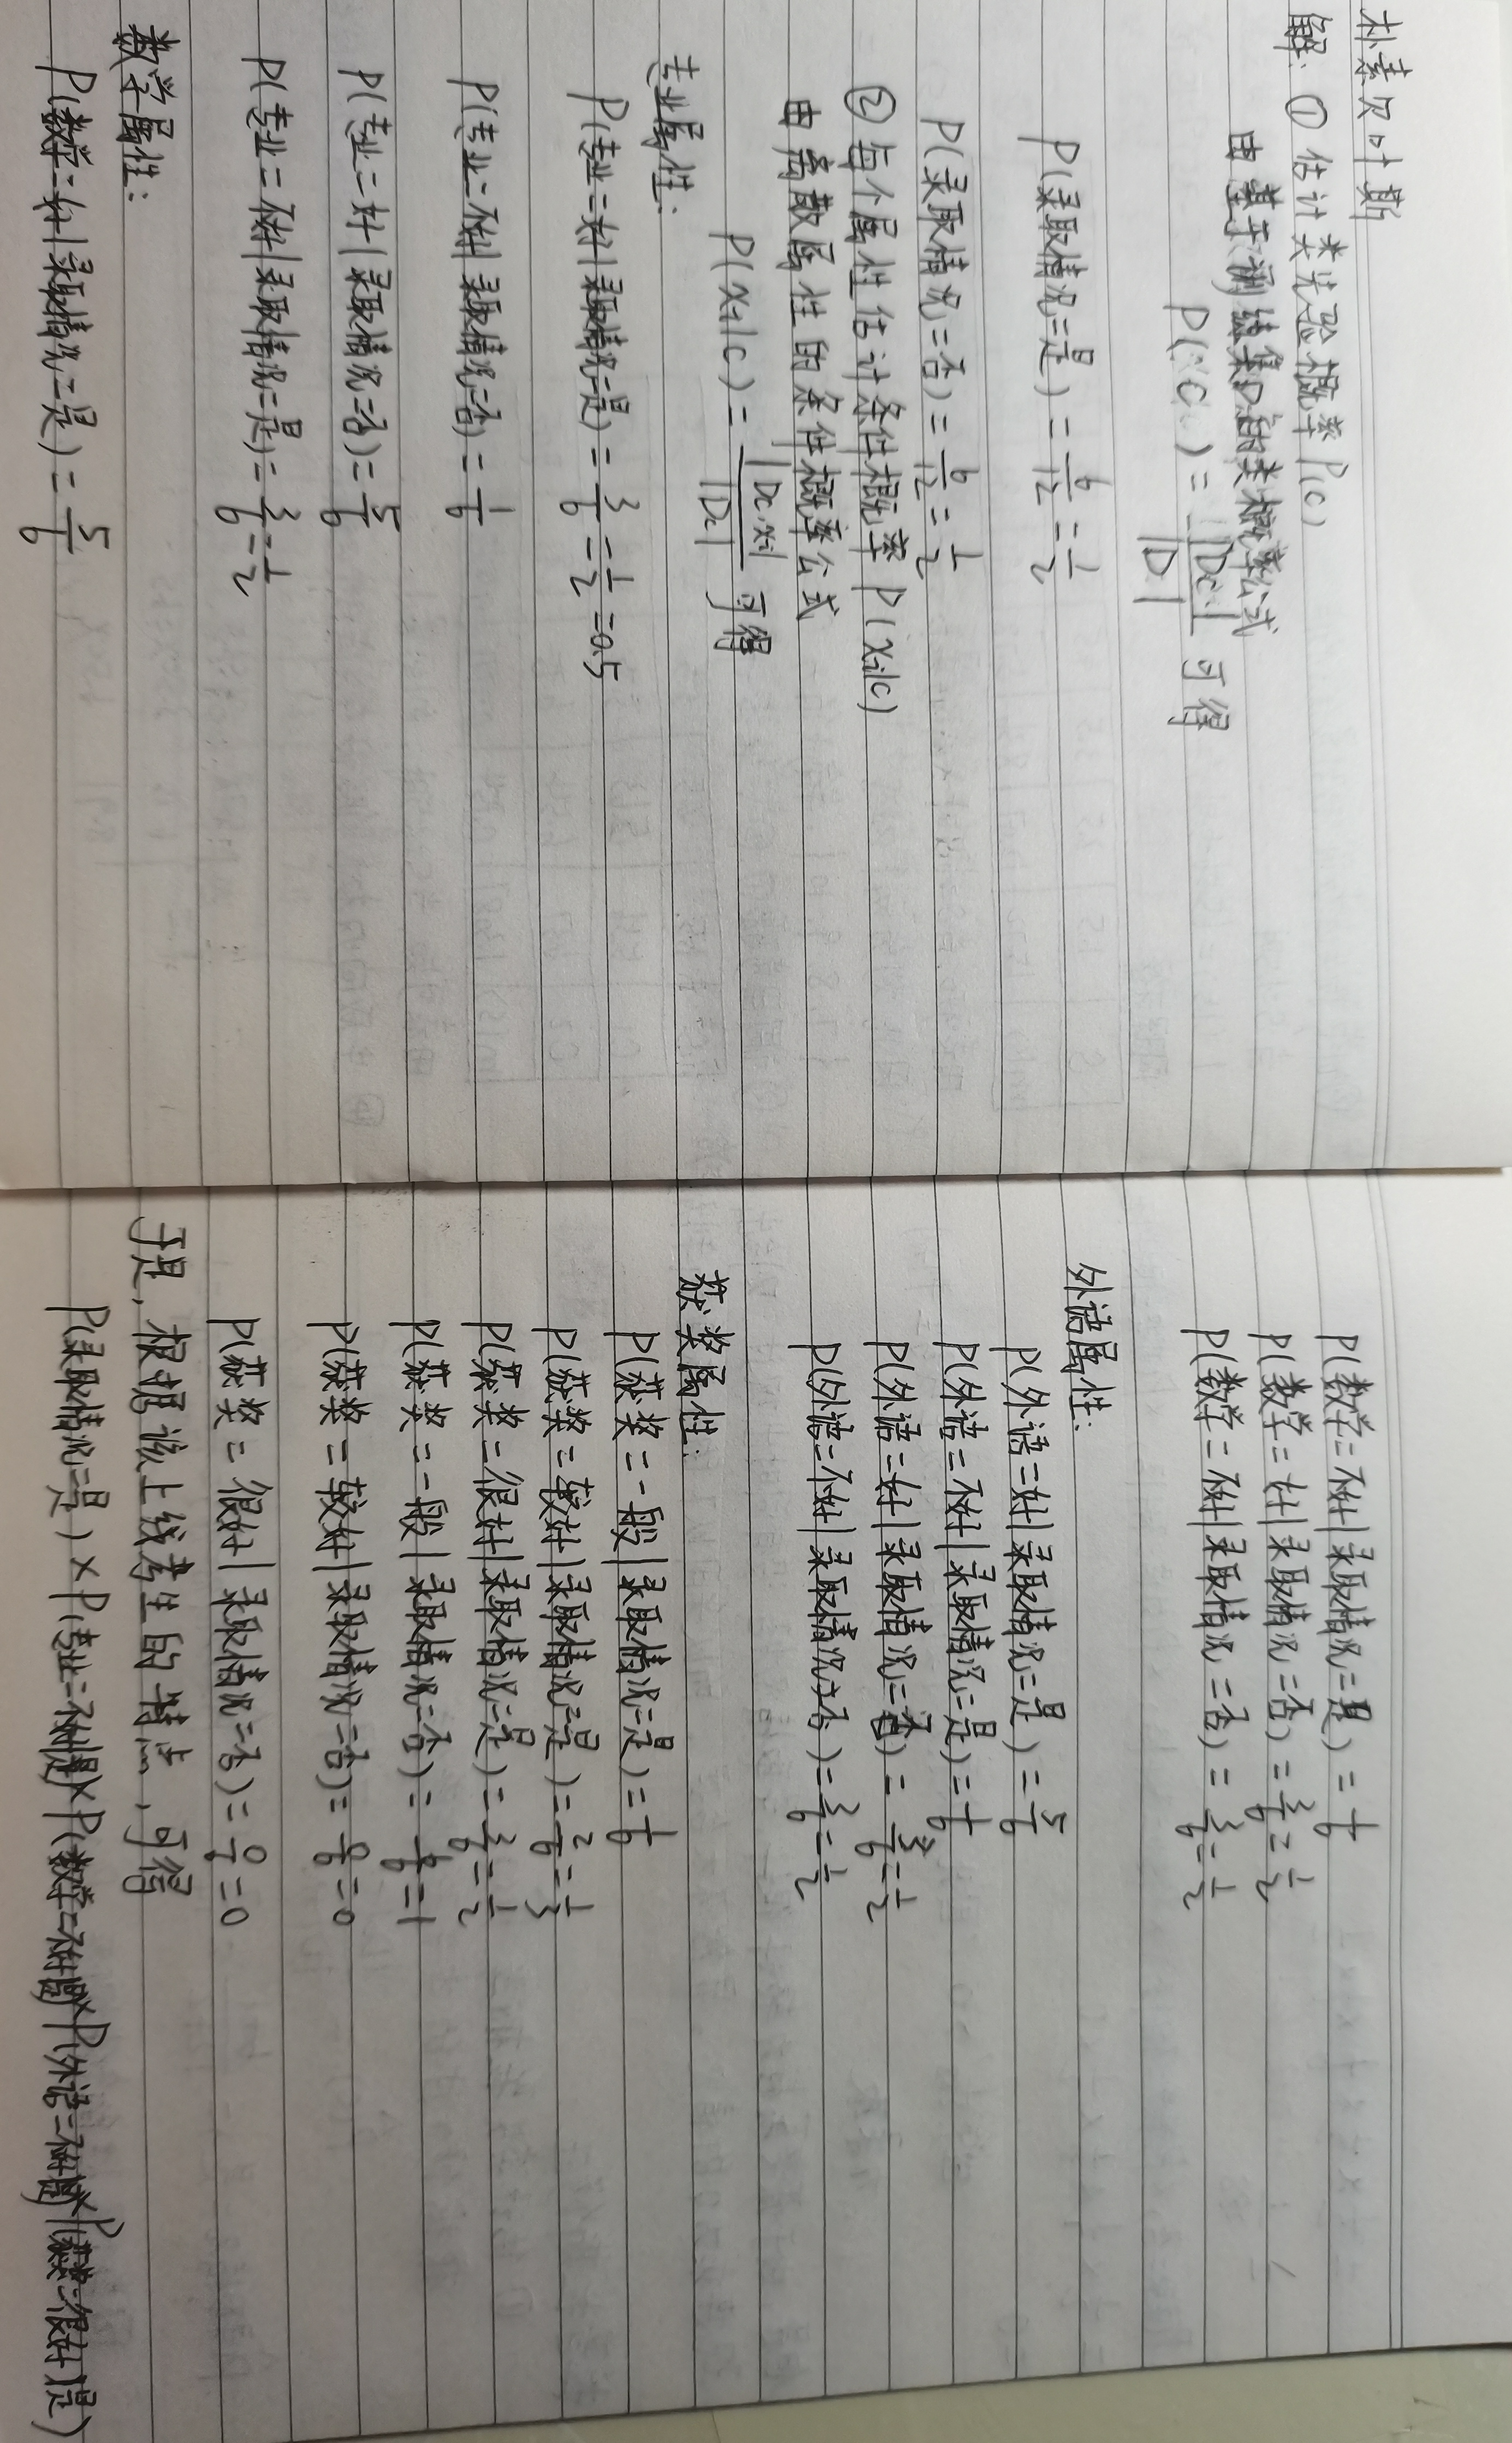 朴素贝叶斯
解: ① 估计类先验概率 P(c)
由基于训练集D的类概率公式
P(c) = |Dc| / |D| 可得
P(录取情况=是) = 6/12 = 1/2
P(录取情况=否) = 6/12 = 1/2
② 每个属性估计条件概率 P(xi|c)
由离散属性的条件概率公式
P(xi|c) = |Dc,xi| / |Dc| 可得
专业属性:
P(专业=好|录取情况=是) = 3/6 = 1/2 = 0.5
P(专业=不好|录取情况=否) = 1/6
P(专业=好|录取情况=否) = 5/6
P(专业=不好|录取情况=是) = 3/6 = 1/2
数学属性:
P(数学=好|录取情况=是) = 5/6
P(数学=不好|录取情况=是) = 1/6
P(数学=好|录取情况=否) = 3/6 = 1/2
P(数学=不好|录取情况=否) = 3/6 = 1/2
外语属性:
P(外语=好|录取情况=是) = 5/6
P(外语=不好|录取情况=是) = 1/6
P(外语=好|录取情况=否) = 3/6 = 1/2
P(外语=不好|录取情况=否) = 3/6 = 1/2
获奖属性:
P(获奖=一般|录取情况=是) = 1/6
P(获奖=较好|录取情况=是) = 2/6 = 1/3
P(获奖=很好|录取情况=是) = 3/6 = 1/2
P(获奖=一般|录取情况=否) = 6/6 = 1
P(获奖=较好|录取情况=否) = 0/6 = 0
P(获奖=很好|录取情况=否) = 0/6 = 0
于是, 根据该上线考生的特点, 可得
P(录取情况=是) × P(专业=不好|是) × P(数学=不好|是) × P(外语=不好|是) × P(获奖=很好|是)